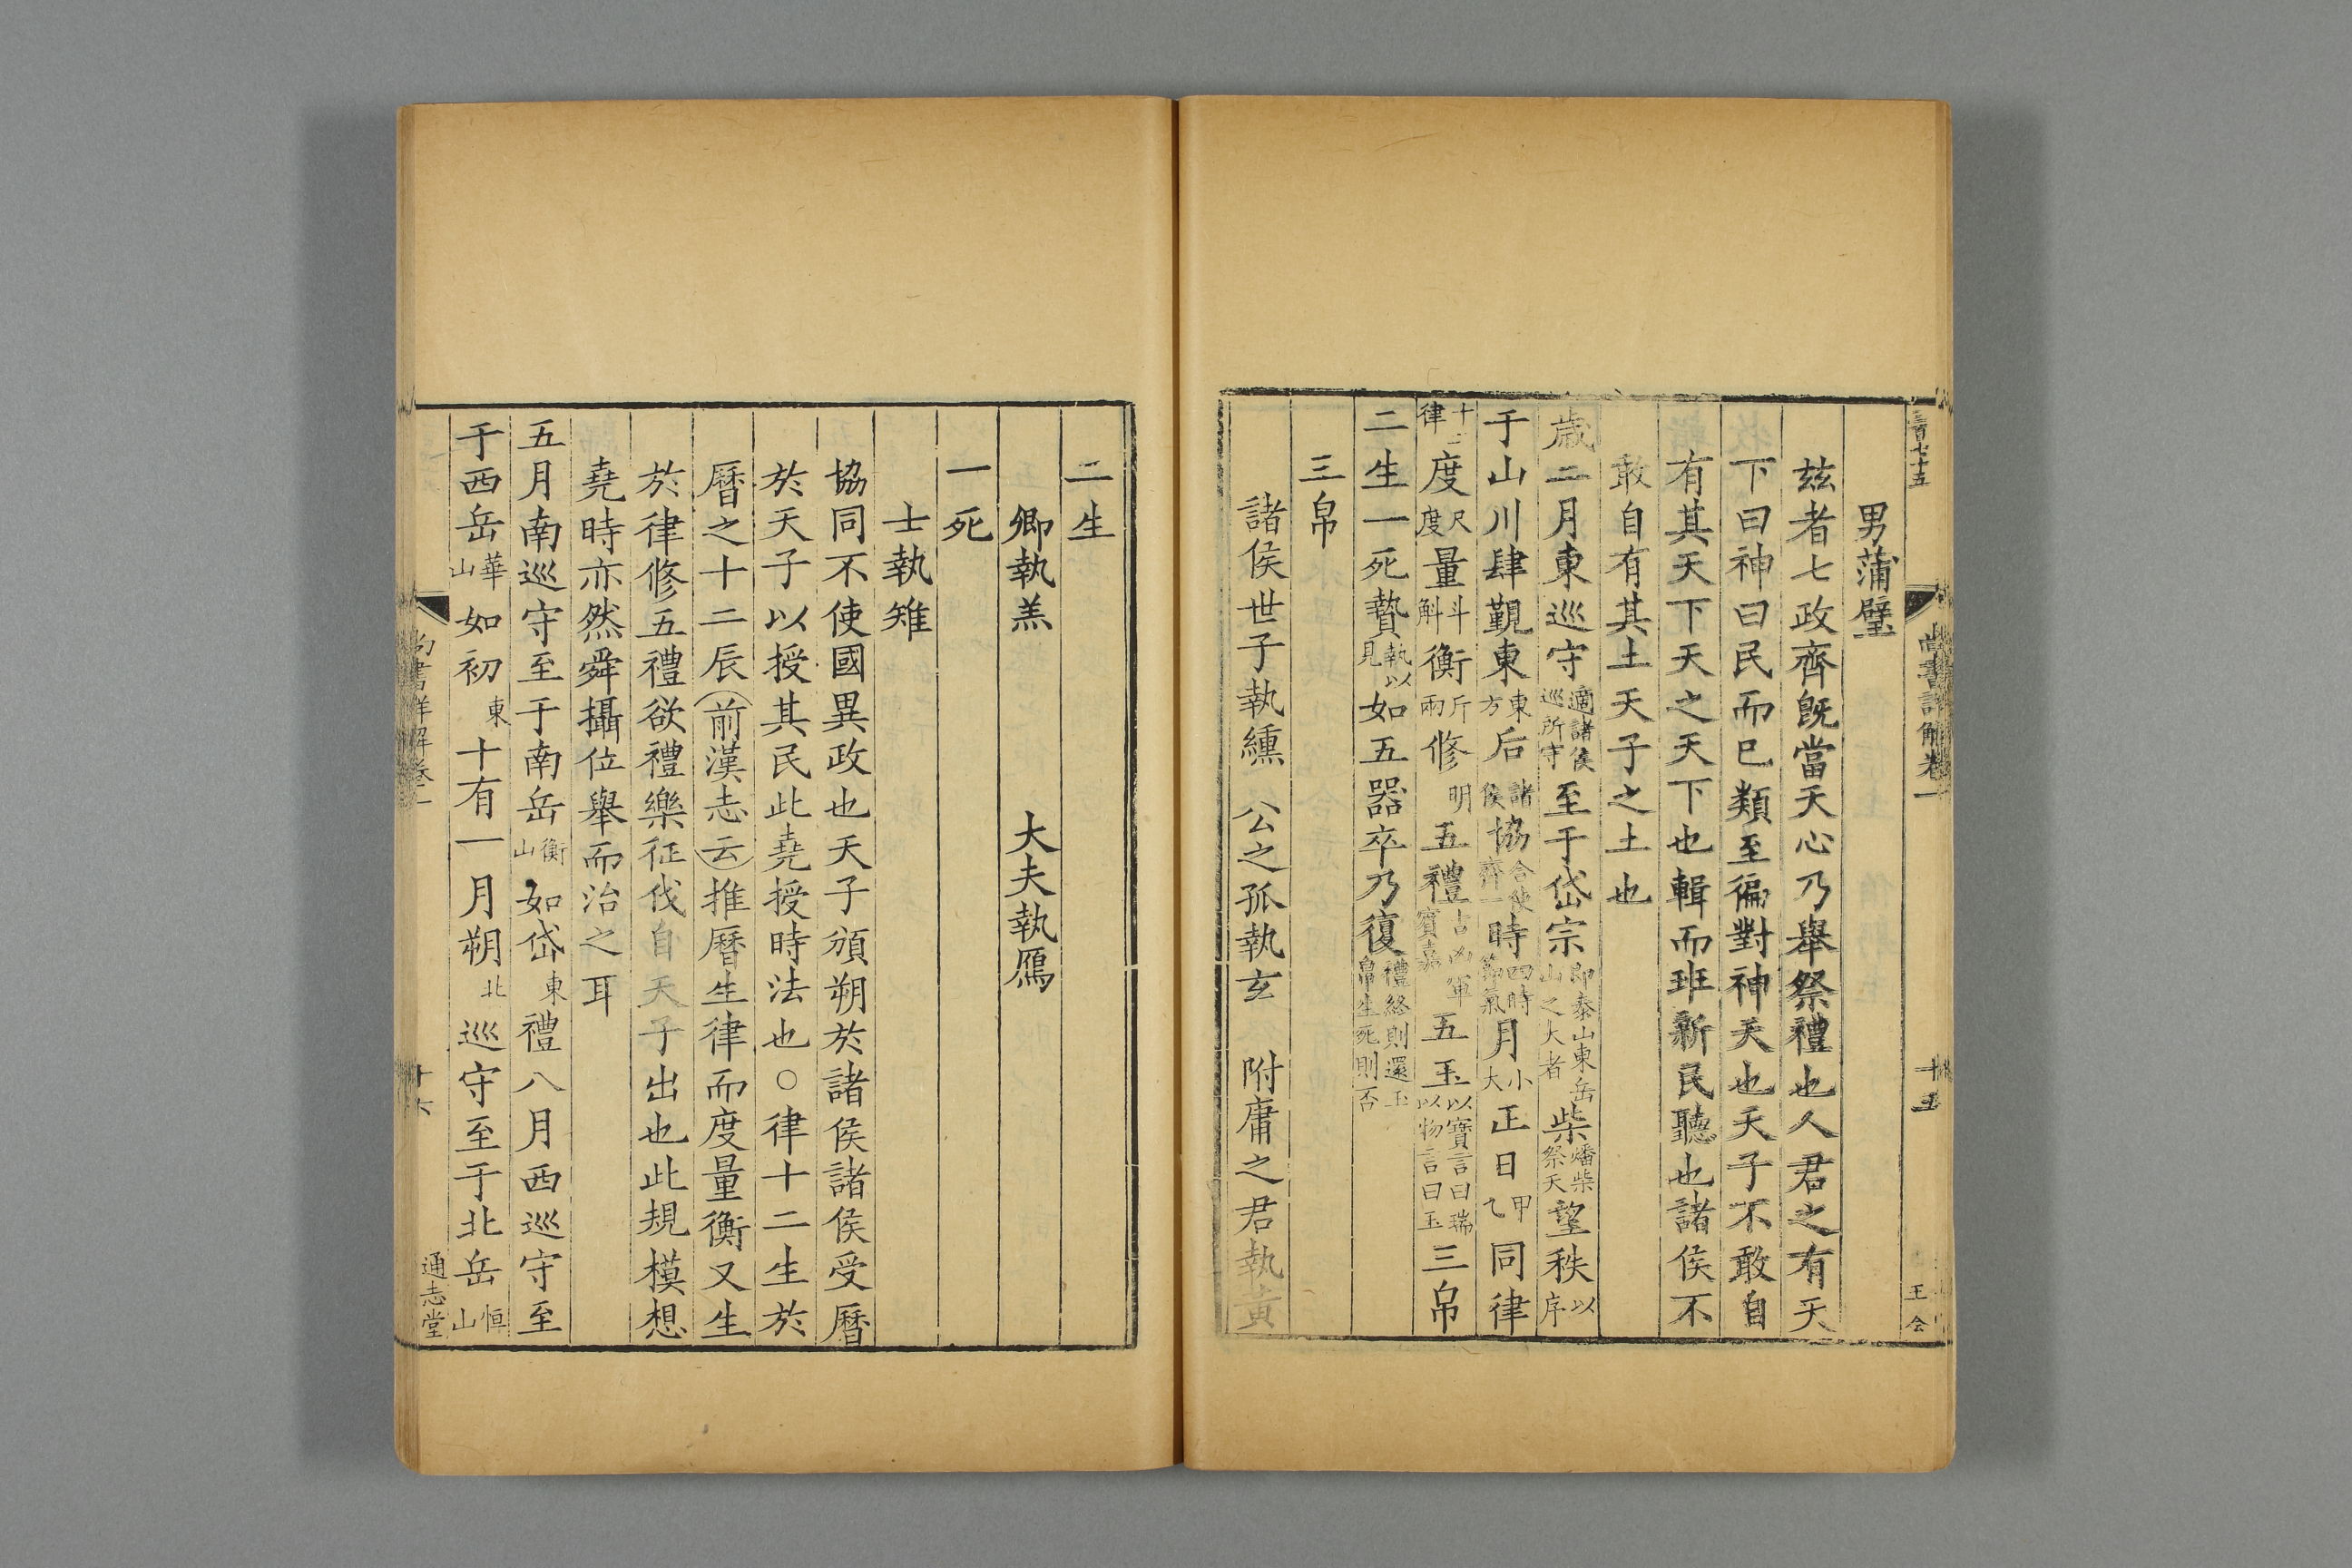 三百七十五
尚書詳解卷一
十五
王公
男蒲璧
茲者七政齊旣當天心乃舉祭禮也人君之有天
下曰神曰民而已類至徧對神天也天子不敢自
有其天下天之天下也輯而班新民聽也諸侯不
敢自有其土天子之土也
歲二月東巡守適諸侯巡所守至于岱宗即泰山東岳山之大者柴燔柴祭天望秩以序
于山川肆覲東東方后諸侯協合使齊一時四時節氣月小大正日甲乙同律
十二律度尺度量斗斛衡斤兩修明五禮吉凶軍賓嘉五玉以寶言曰瑞以物言曰玉三帛
二生一死贄執以見如五器卒乃復禮終則還玉帛生死則否
三帛
諸侯世子執纁 公之孤執玄 附庸之君執黃
二生
卿執羔 大夫執鴈
一死
士執雉
協同不使國異政也天子頒朔於諸侯諸侯受曆
於天子以授其民此堯授時法也○律十二生於
曆之十二辰前漢志云推曆生律而度量衡又生
於律修五禮欲禮樂征伐自天子出也此規模想
堯時亦然舜攝位舉而治之耳
五月南巡守至于南岳衡山如岱東禮八月西巡守至
于西岳華山如初東十有一月朔北巡守至于北岳恒山
尚書詳解卷一
十六
通志堂